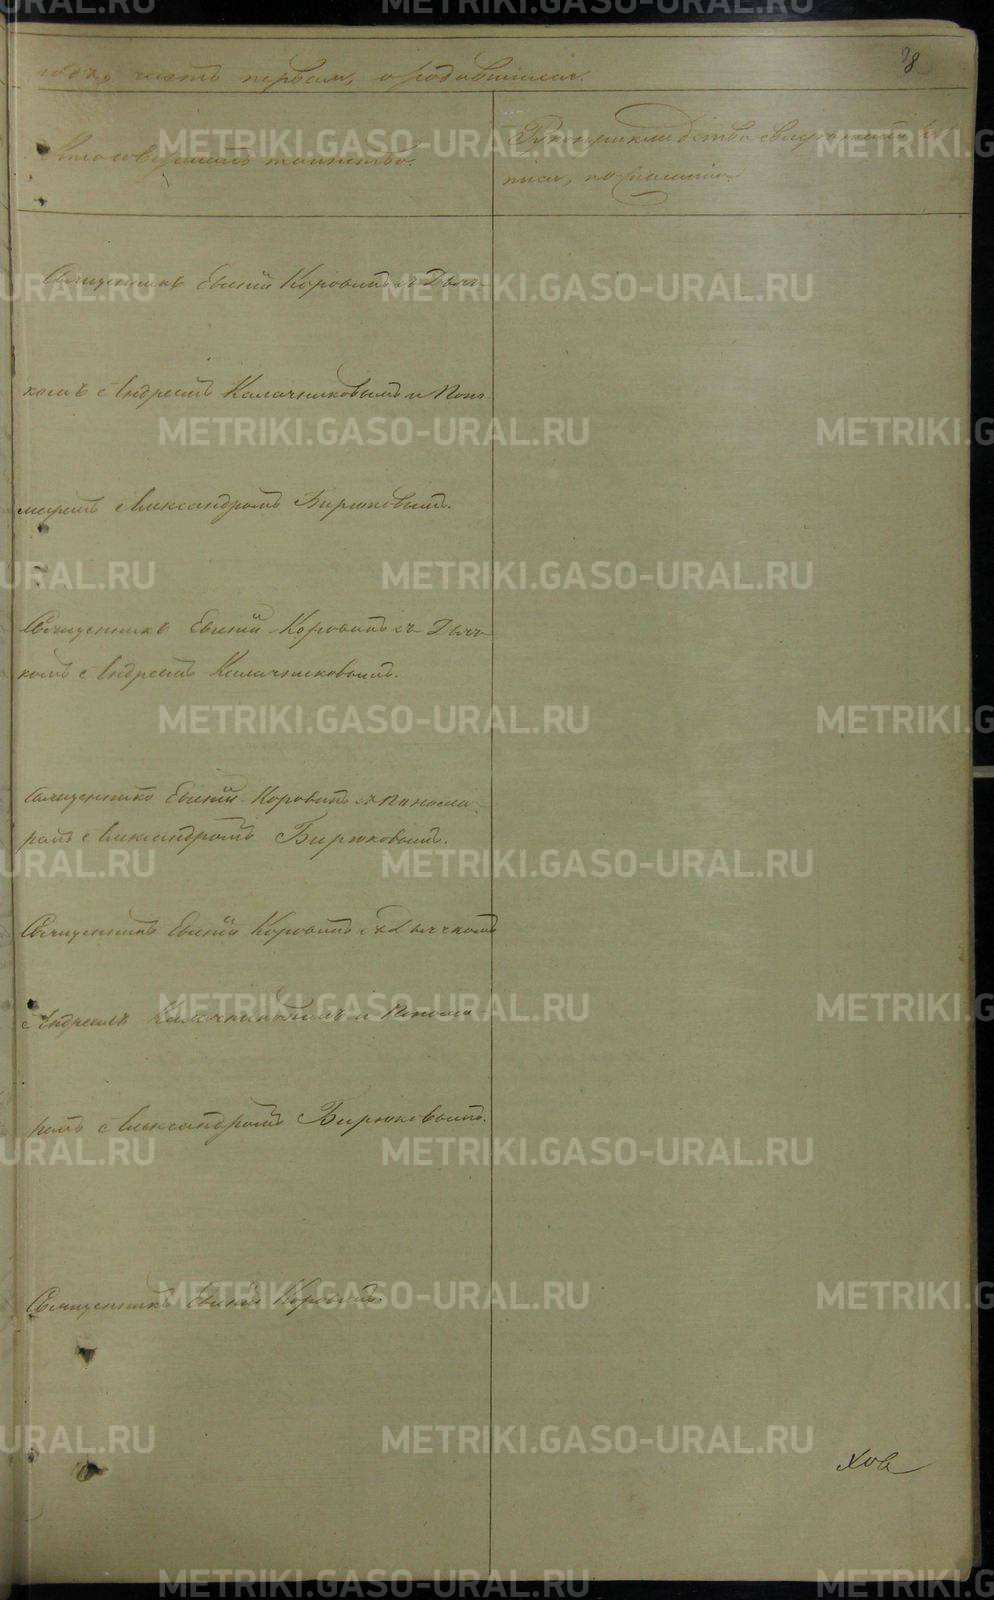 38
годъ, часть первая, о родившихся.
Кто совершалъ таинство.
Рукоприкладство свидетелей
писи, по желанію.
Священникъ Евгеній Коровинъ съ Дьяч-
комъ Андреемъ Калачниковымъ и Поно-
маремъ Александромъ Бирюковымъ.
Священникъ Евгеній Коровинъ съ Дьяч-
комъ Андреемъ Калачниковымъ.
Священникъ Евгеній Коровинъ съ Понома-
ремъ Александромъ Бирюковымъ.
Священникъ Евгеній Коровинъ съ Дьячкомъ
Андреемъ Калачниковымъ и Понома-
ремъ Александромъ Бирюковымъ.
Священникъ Евгеній Коровинъ.
хов
METRIKI.GASO-URAL.RU